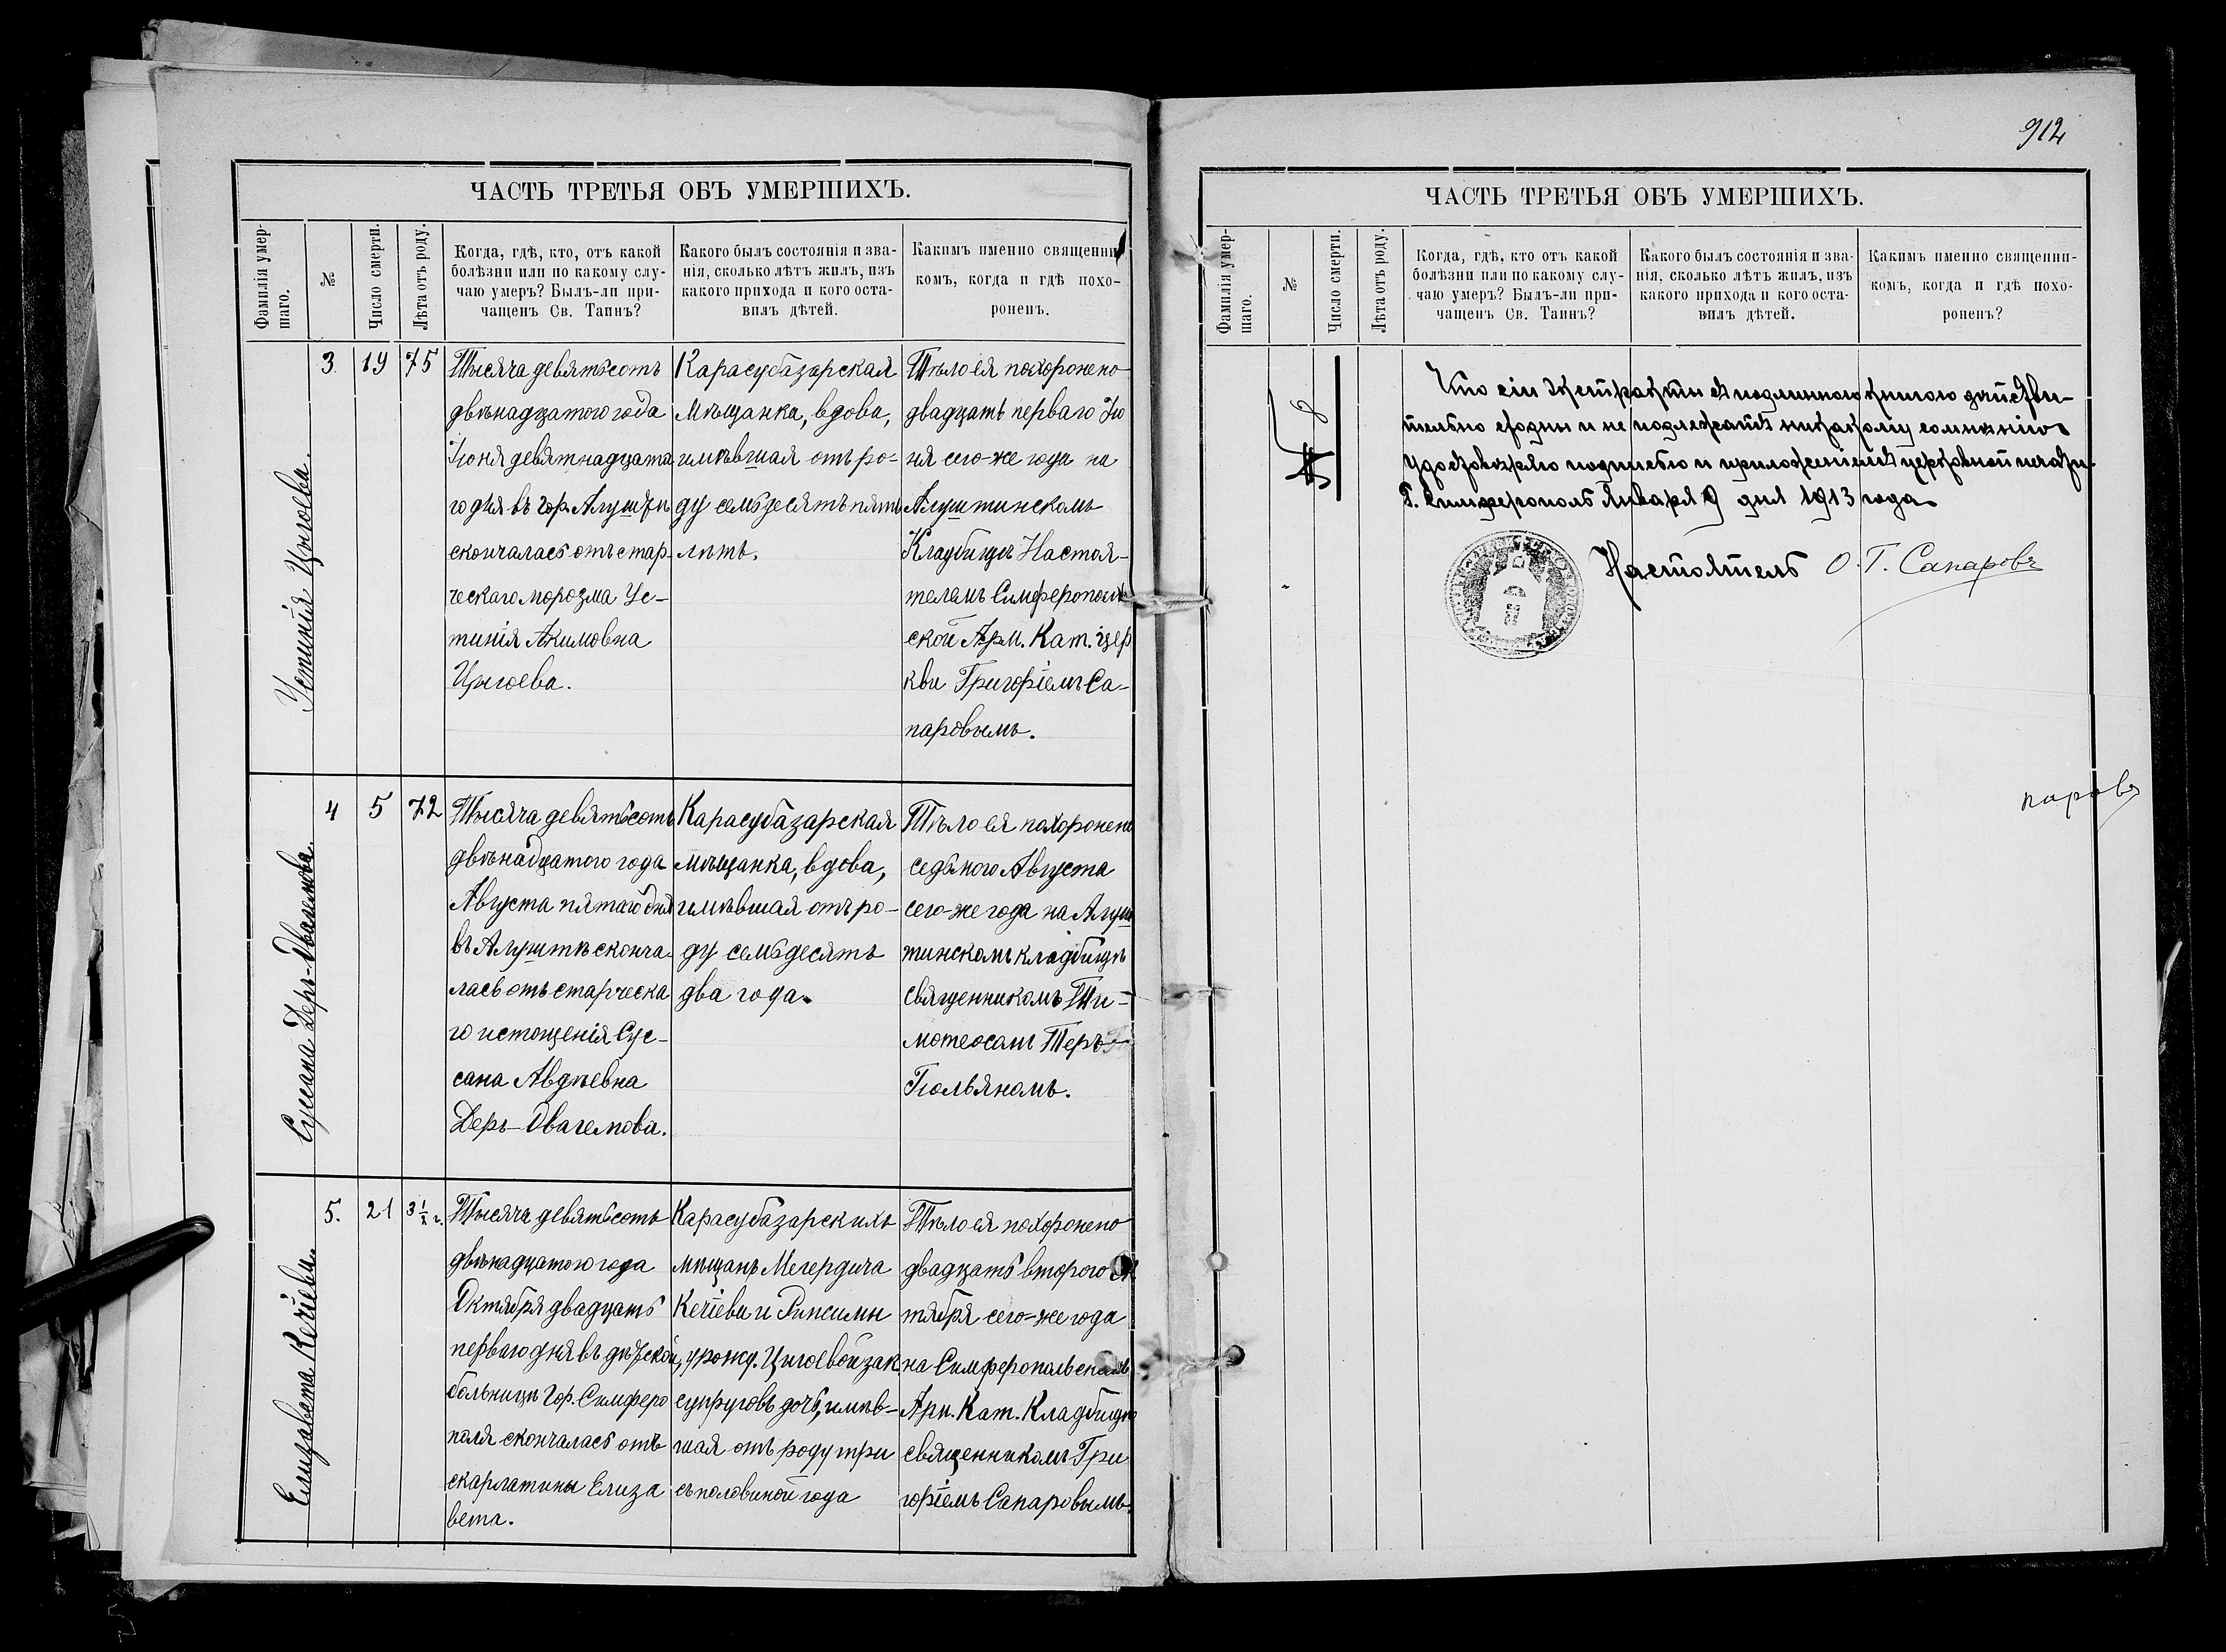 ЧАСТЬ ТРЕТЬЯ ОБЪ УМЕРШИХЪ.
Фамилія умер-
шаго.
№
Число смерти.
Лѣта отъ роду.
Когда, гдѣ, кто, отъ какой
болѣзни или по какому слу-
чаю умеръ? Былъ-ли при-
чащенъ Св. Таинъ?
Какого былъ состоянія и зва-
нія, сколько лѣтъ жилъ, изъ
какого прихода и кого оста-
вилъ дѣтей.
Какимъ именно священни
комъ, когда и гдѣ похо-
роненъ.
Устинія Цнгоева.
3.
19
75
Тысяча девятьсотъ
двѣнадцатого года
Іюня девятнадцата
го дня въ гор. Алушти
скончалась отъ стар-
ческаго морозма Ус-
тинія Акимовна
Цнгоева.
Карасубазарская
Мѣщанка, вдова,
имѣвшая отъ ро-
ду семьдесятъ пять
лѣтъ.
Тѣло ея похоронено
двадцать перваго Ію
ня сего-же года на
Алуштинскомъ
Кладбищѣ Настоя-
телемъ Симферополь
ской Арм. Кат. цер
кви Григоріемъ Са-
паровымъ.
Сусана Деръ-Овагемова.
4
5
72
Тысяча девятьсотъ
двѣнадцатого года
Августа пятаго дня
въ Алуштѣ сконча-
лась отъ старческа
го истощенія Сус-
сана Авдѣевна
Деръ-Овагемова.
Карасубазарская
мѣщанка, вдова,
имѣвшая отъ ро-
ду семьдесятъ
два года.
Тѣло ея похоронено
седьмого Августа
сего-же года на Алуш
тинскомъ кладбищѣ
священникомъ Ти-
мотеосамъ Теръ-
Гюльяномъ.
Елизавета Кечіева.
5.
21
3½ г.
Тысяча девятьсотъ
двѣнадцатого года
Октября двадцать
перваго дня въ дѣтской
больницѣ гор. Симферо
поля скончалась отъ
скарлатины Елиза
вета.
Карасубазарскихъ
мѣщанъ Мегердича
Кечіева и Рипсимы
, урожд. Цнгоевой зак.
супруговъ дочь, имѣв-
шая отъ роду три
съ половиной года
Тѣло ея похоронено
двадцать второго Ок
тября сего-же года
на Симферопольскомъ
Арм. Кат. Кладбищѣ
священникомъ Гри
горіемъ Сапаровымъ.
912
ЧАСТЬ ТРЕТЬЯ ОБЪ УМЕРШИХЪ.
Фамилія умер-
шаго.
№
Число смерти.
Лѣта отъ роду.
Когда, гдѣ, кто отъ какой
болѣзни или по какому слу-
чаю умеръ? Былъ-ли при-
чащенъ Св. Таинъ?
Какого былъ состоянія и зва-
нія, сколько лѣтъ жилъ, изъ
какого прихода и кого оста-
вилъ дѣтей.
Какимъ именно священни-
комъ, когда и гдѣ похо-
роненъ?
Что сіи экстракты съ подлинною книгою дѣйстви-
тельно сходны и не подлежатъ никакому сомнѣнію
удостовѣряю подписью и приложеніемъ церковной печати.
Г. Симферополь Января 9 дня 1913 года
Настоятель О. Г. Сапаровъ
паровъ